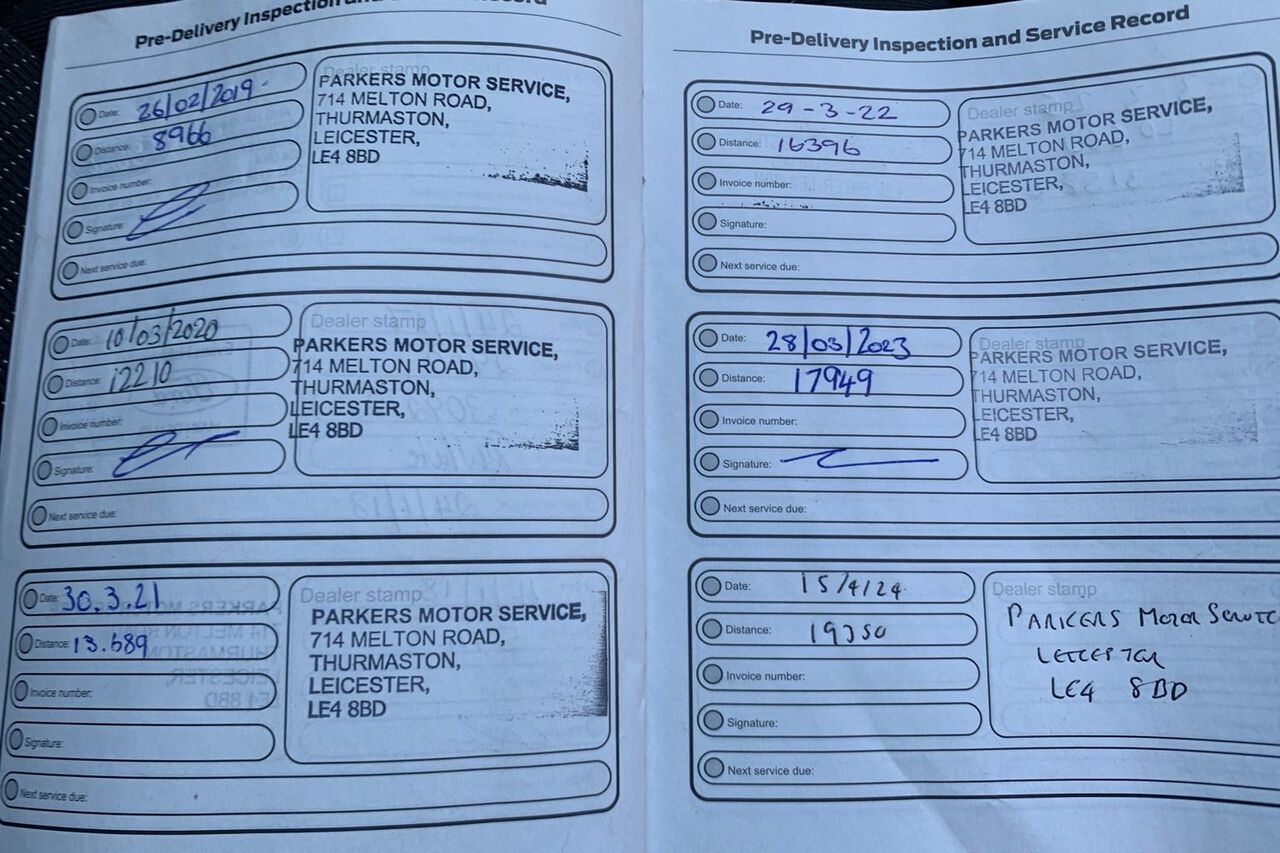 Pre-Delivery Inspection and Service Record
Dealer stamp
Date: 26/02/2019
Distance: 8966
Invoice number:
Signature:
Next service due:
PARKERS MOTOR SERVICE,
714 MELTON ROAD,
THURMASTON,
LEICESTER,
LE4 8BD
Date: 10/03/2020
Distance: 12210
Invoice number:
Signature:
Next service due:
Dealer stamp
PARKERS MOTOR SERVICE,
714 MELTON ROAD,
THURMASTON,
LEICESTER,
LE4 8BD
Date: 30.3.21
Distance: 13.689
Invoice number:
Signature:
Next service due:
Dealer stamp
PARKERS MOTOR SERVICE,
714 MELTON ROAD,
THURMASTON,
LEICESTER,
LE4 8BD
Pre-Delivery Inspection and Service Record
Date: 29-3-22
Distance: 16396
Invoice number:
Signature:
Next service due:
Dealer stamp
PARKERS MOTOR SERVICE,
714 MELTON ROAD,
THURMASTON,
LEICESTER,
LE4 8BD
Date: 28/03/2023
Distance: 17949
Invoice number:
Signature:
Next service due:
Dealer stamp
PARKERS MOTOR SERVICE,
714 MELTON ROAD,
THURMASTON,
LEICESTER,
LE4 8BD
Date: 15/4/24
Distance: 19350
Invoice number:
Signature:
Next service due:
Dealer stamp
PARKERS MOTOR SERVICE
LEICESTER
LE4 8BD